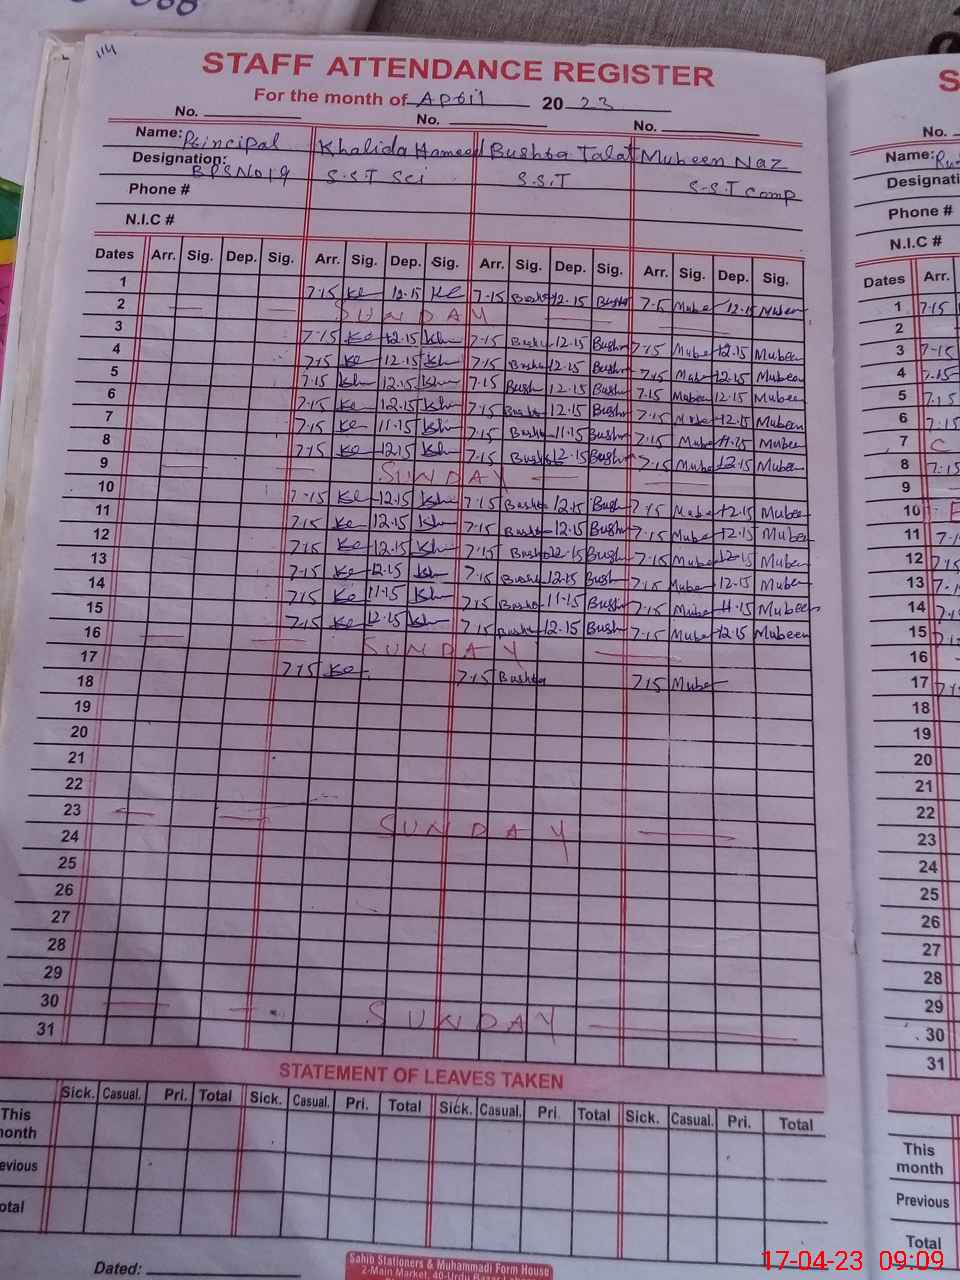 114
STAFF ATTENDANCE REGISTER
For the month of April 20 23
No. No. No.
Name: Principal Khalida Hameed Bushra Talat Mubeen Naz
Designation: BPS No 19 S.S.T Sci S.S.T S.S.T Comp
Phone #
N.I.C #
Dates Arr. Sig. Dep. Sig. Arr. Sig. Dep. Sig. Arr. Sig. Dep. Sig. Arr. Sig. Dep. Sig.
1 7-15 Ke 12.15 Ke 7-15 Bushr 12.15 Bushra 7-15 Mube 12.15 Mubeen
2 SUNDAY
3 7-15 Ke 12.15 Kh 7-15 Bushr 12.15 Bushr 7-15 Mube 12.15 Mubeen
4 7-15 Ke 12.15 Kh 7-15 Bushr 12.15 Bushr 7-15 Mube 12.15 Mubeen
5 7-15 Kh 12.15 Kh 7-15 Bush 12.15 Bushr 7-15 Mubeen 12.15 Mubeen
6 7-15 Ke 12.15 Kh 7-15 Bushr 12.15 Bushr 7-15 Mube 12.15 Mubeen
7 7-15 Ke 11-15 Kh 7-15 Bushr 11-15 Bushr 7-15 Mube 11.15 Mubeen
8 7-15 Ke 12.15 Kh 7-15 Bushr 12.15 Bushr 7-15 Mube 12.15 Mubeen
9 SUNDAY
10 7-15 Ke 12.15 Kh 7-15 Bushr 12.15 Bush 7-15 Mube 12.15 Mubeen
11 7-15 Ke 12.15 Kh 7-15 Bushr 12.15 Bushr 7-15 Mube 12.15 Mubeen
12 7-15 Ke 12.15 Kh 7-15 Bushr 12.15 Bush 7-15 Mube 12.15 Mubeen
13 7-15 Ke 12.15 Kh 7-15 Bushr 12.15 Bush 7-15 Mube 12.15 Muben
14 7-15 Ke 11-15 Kh 7-15 Bushr 11-15 Bushr 7-15 Mube 11.15 Mubeen
15 7-15 Ke 12.15 Kh 7-15 Bushr 12.15 Bush 7-15 Mube 12.15 Mubeen
16 SUNDAY
17 7-15 Ke 7-15 Bushra 7-15 Mube
18
19
20
21
22
23 SUNDAY
24
25
26
27
28
29
30 SUNDAY
31
STATEMENT OF LEAVES TAKEN
Sick. Casual. Pri. Total Sick. Casual. Pri. Total Sick. Casual. Pri. Total Sick. Casual. Pri. Total
This
month
evious
otal
Dated:
Sahib Stationers & Muhammadi Form House
2-Main Market, 40-Urdu Bazar
S
No.
Name:
Designati
Phone #
N.I.C #
Dates Arr.
1 7-15
2
3 7-15
4 7.15
5 7.15
6 7.15
7 C
8 7.15
9
10
11 7-1
12 7.15
13 7-1
14 7.1
15 7.1
16
17 7.1
18
19
20
21
22
23
24
25
26
27
28
29
30
31
This
month
Previous
Total
17-04-23 09:09